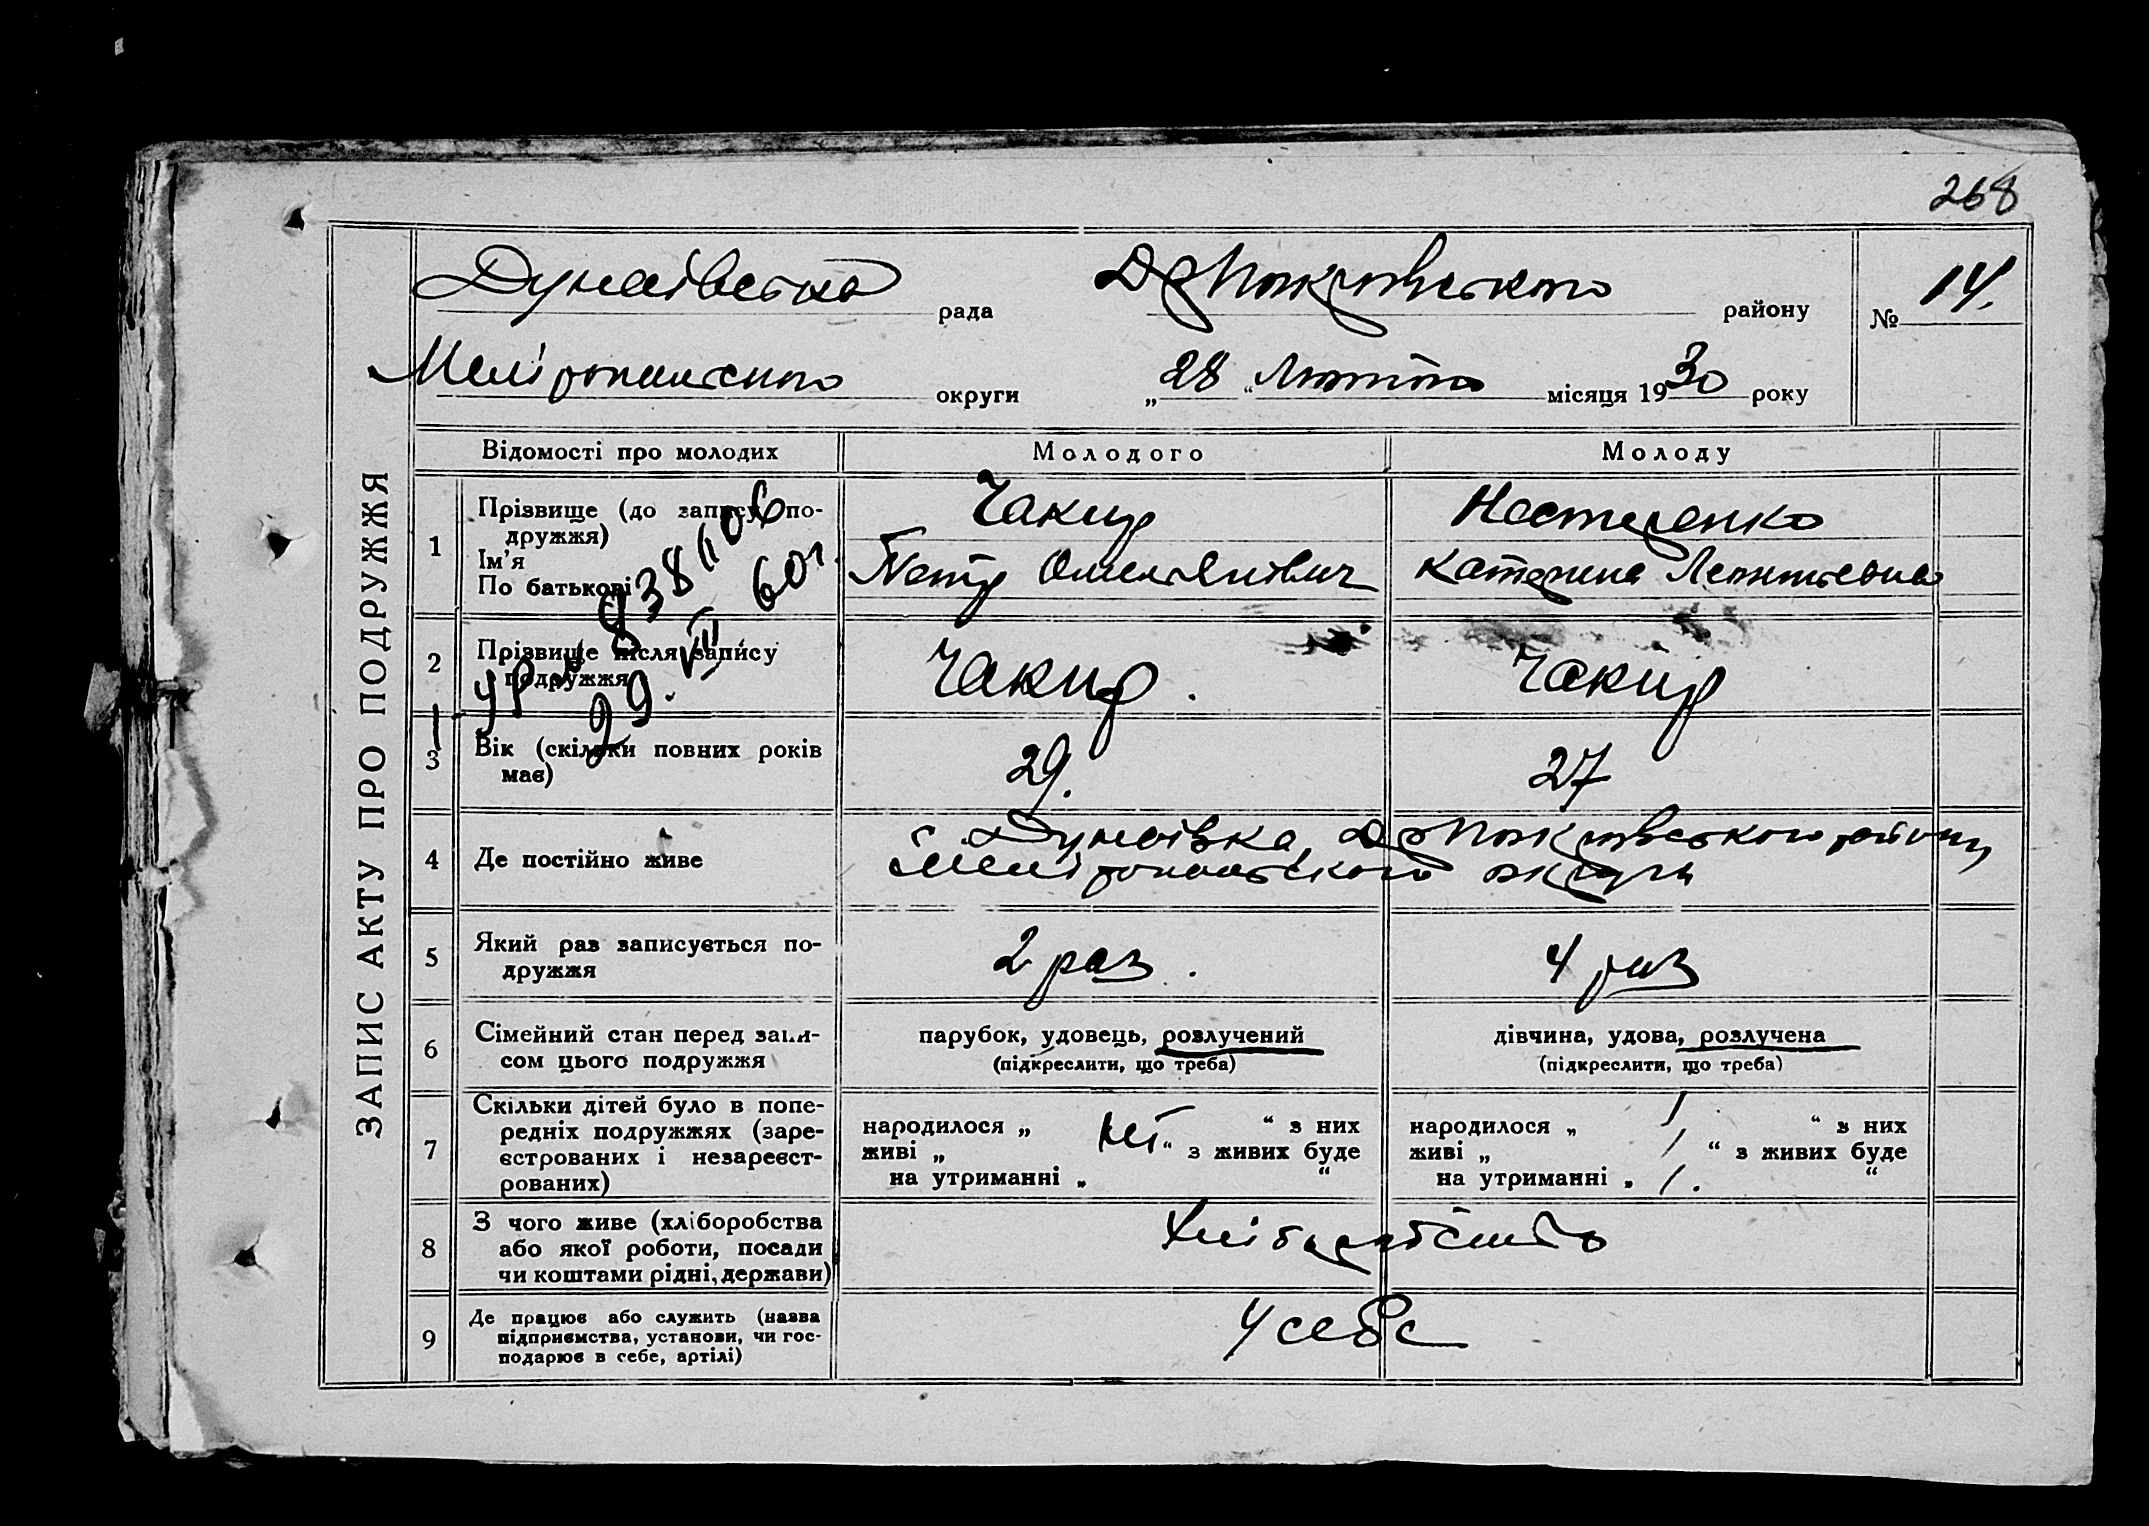 268
ЗАПИС АКТУ ПРО ПОДРУЖЖЯ
Дунаївська рада Др Покровського району № 14.
Меліропільського округи „28“ Лютого місяця 1930 року
Відомості про молодих Молодого Молоду
1 Прізвище (до запису по-
дружжя) Чакир Нестеренко
Ім'я
По батькові Петр Омельянович Катерина Леонтьевна
8 38 1106
29. VII 60г.
2 Прізвище після запису
подружжя Чакир. Чакир
3 Вік (скільки повних років
має) 29. 27
4 Де постійно живе с. Дунаївка, Др Покровського району,
Меліропільського округи
5 Який раз записується по-
дружжя 2 раз. 4 раз
6 Сімейний стан перед запи-
сом цього подружжя
парубок, удовець, розлучений
(підкреслити, що треба)
дівчина, удова, розлучена
(підкреслити, що треба)
7 Скільки дітей було в попе-
редніх подружжях (заре-
єстрованих і незареєст-
рованих)
народилося „ “ з них
живі „ ні “ з живих буде
на утриманні „ “
народилося „ 1 “ з них
живі „ 1 “ з живих буде
на утриманні „ 1. “
8 З чого живе (хліборобства
або якої роботи, посади
чи коштами рідні, держави) Хліборобство
9 Де працює або служить (назва
підприємства, установи, чи гос-
подарює в себе, артілі) У себе